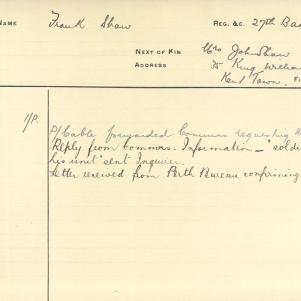 NAME Frank Shaw REG. &C. 27th Ba
NEXT OF KIN Mrs John Shaw
ADDRESS 35 King Willia
Kent Town. F
1/P.
P/Cable forwarded Commrs requesting
Reply from Commrs. Information – "sold
his unit" sent Inquirer.
Letter received from Perth Bureau confirming